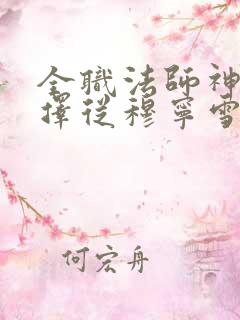 全職法師神
擇從穆寧雪
何宏舟